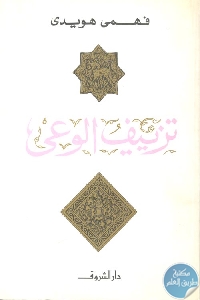 فهمى هويدى
تزييف الوعى
دار الشروق
مكتبة
طريق العلم